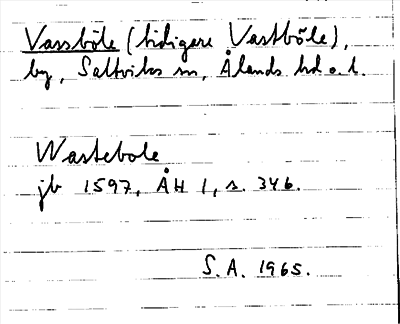 Vassböle (tidigare Vastböle),
by, Saltviks sn, Ålands hd o. l.
Wastebole
jb 1597, ÅH 1, s. 346.
S.A. 1965.